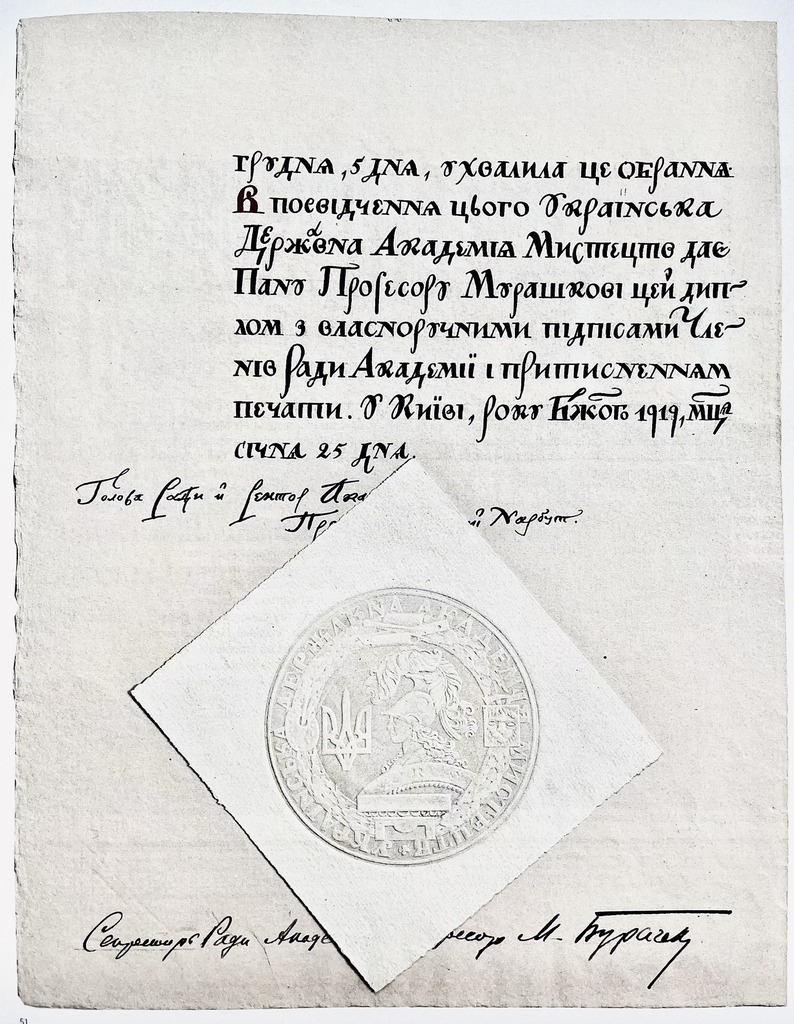 грудня, 5 дня, ухвалила це обрання.
В посвідчення цього Українська
Державна Академія Мистецтв дає
Пану Професору Мурашкові цей дип-
лом з власноручними підписами Чле-
нів Ради Академії і притисненням
печати. У Київі, року Бжого 1919, мця
січня 25 дня.
Голова Ради й ректор Ака
Пр й Нарбут.
УКРАЇНСЬКА ДЕРЖАВНА АКАДЕМІЯ МИСТЕЦТВ
Секретарь Ради Акаде есор М. Бурачек
51